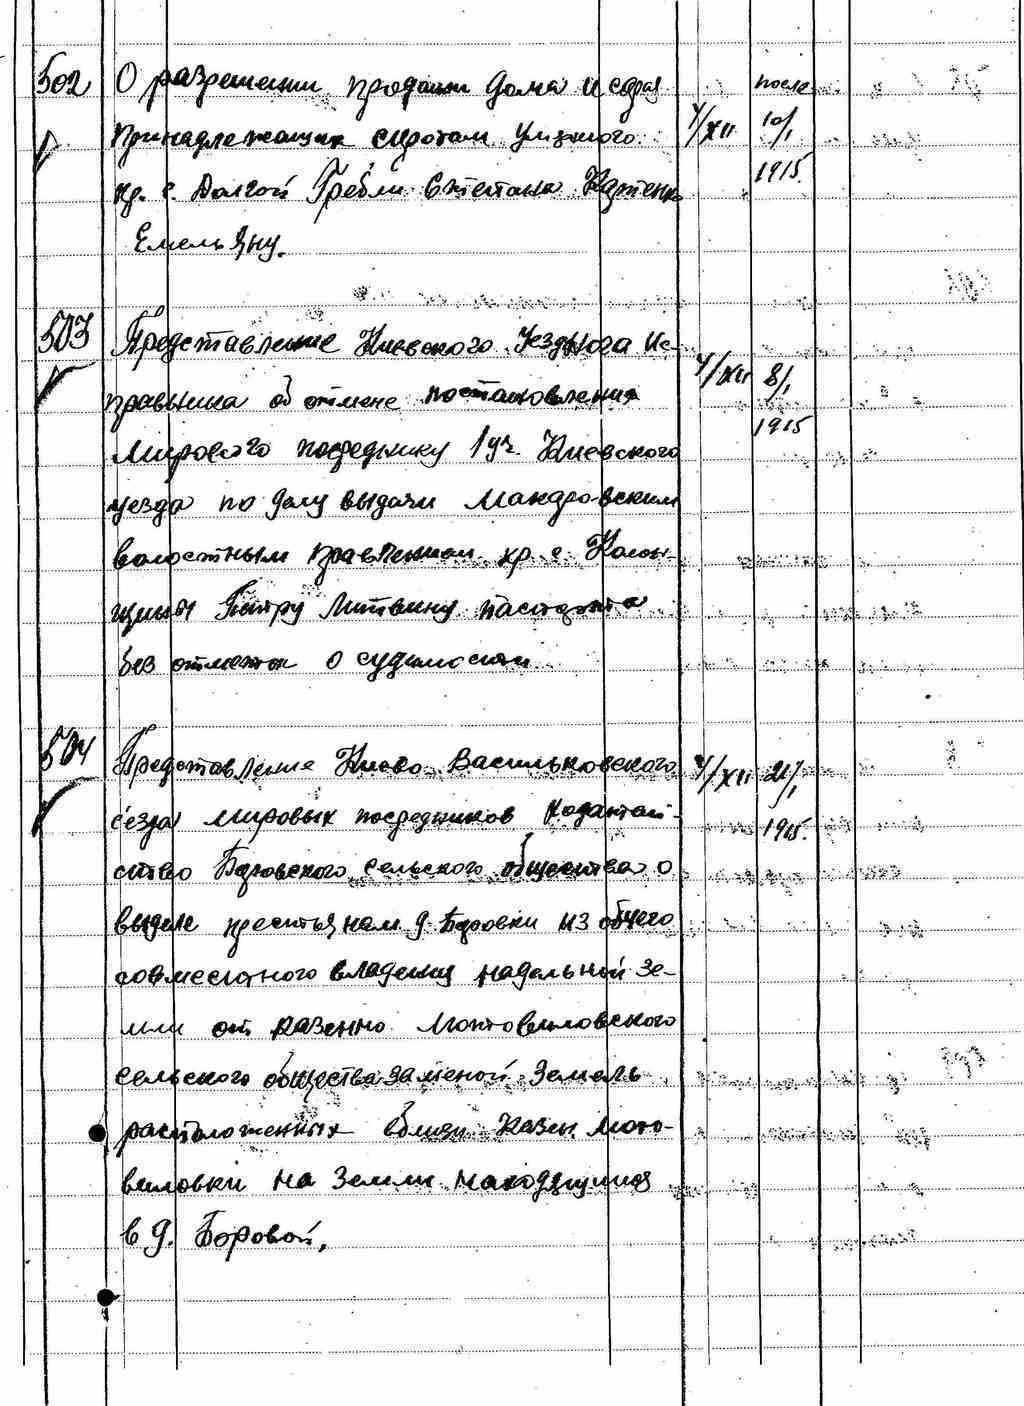 502 О разрешении продажи дома и сарая
Принадлежащих сиротам умершего
кр. с. Долгой Гребли Степана
Емельяну.
4/XII после 10/I 1915.
503 Представление Киевского Уездного Ис-
правника об отмене постановления
Мирового посреднику 1 уч. Киевского
уезда по делу выдачи Макаровским
волостным правлением кр. с Колон-
щины Петру Литвину паспорта
без отметок о судимости
4/XII 8/I 1915
504 Представление Киево Васильковского
сезда мировых посредников Ходатай-
ство Боровского сельского общества о
выделе крестьянам д. Боровки из общего
совместного владения надельной зе-
мли от казенно Мотовиловского
сельского общества заменой Земель
расположенных вблизи Казен. Мото-
виловки на Земли находящиеся
в д. Боровой,
4/XII 21/I 1915.